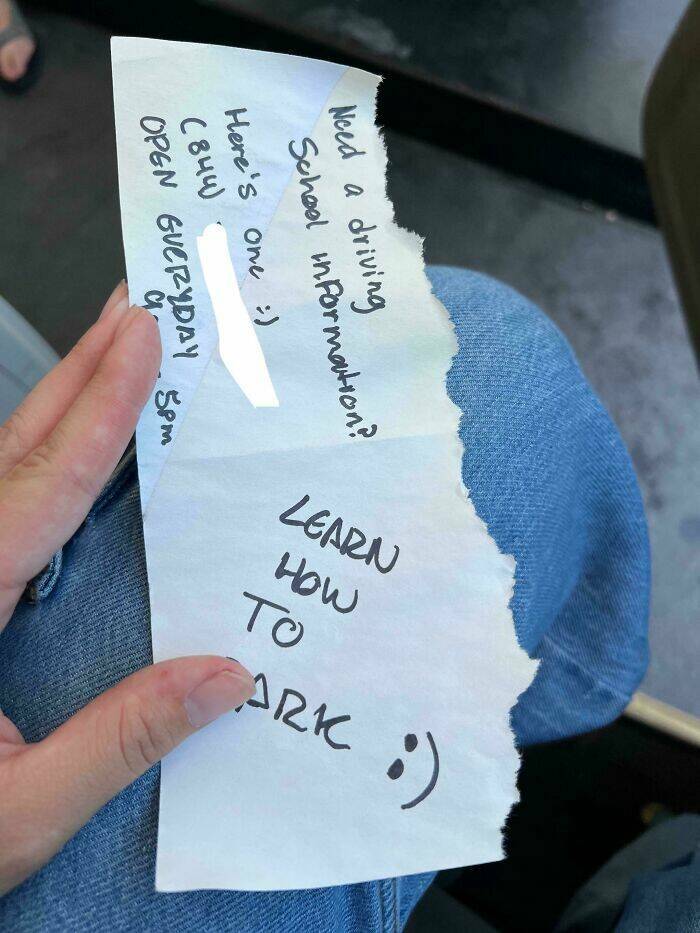 Need a driving
School information?
Here's one :)
(844)
OPEN EVERYDAY
9 5pm
LEARN
HOW
TO
ARK :)